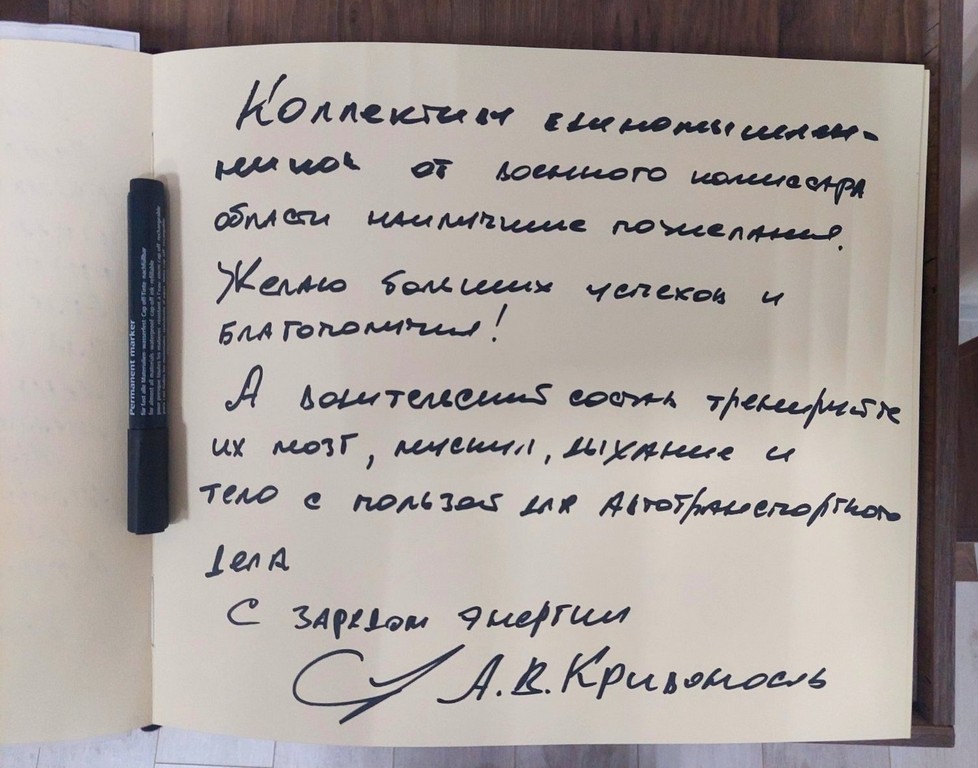 Коллектив единомышлен-
ников от военного комиссара
области наилучшие пожелания.
Желаю больших успехов и
благополучия!
А водительский состав тренируйте
их мозг, мысли, дыхание и
тело с пользой для автотранспортного
дела
С зарядом энергии
А.В. Кривоносов
Permanent marker